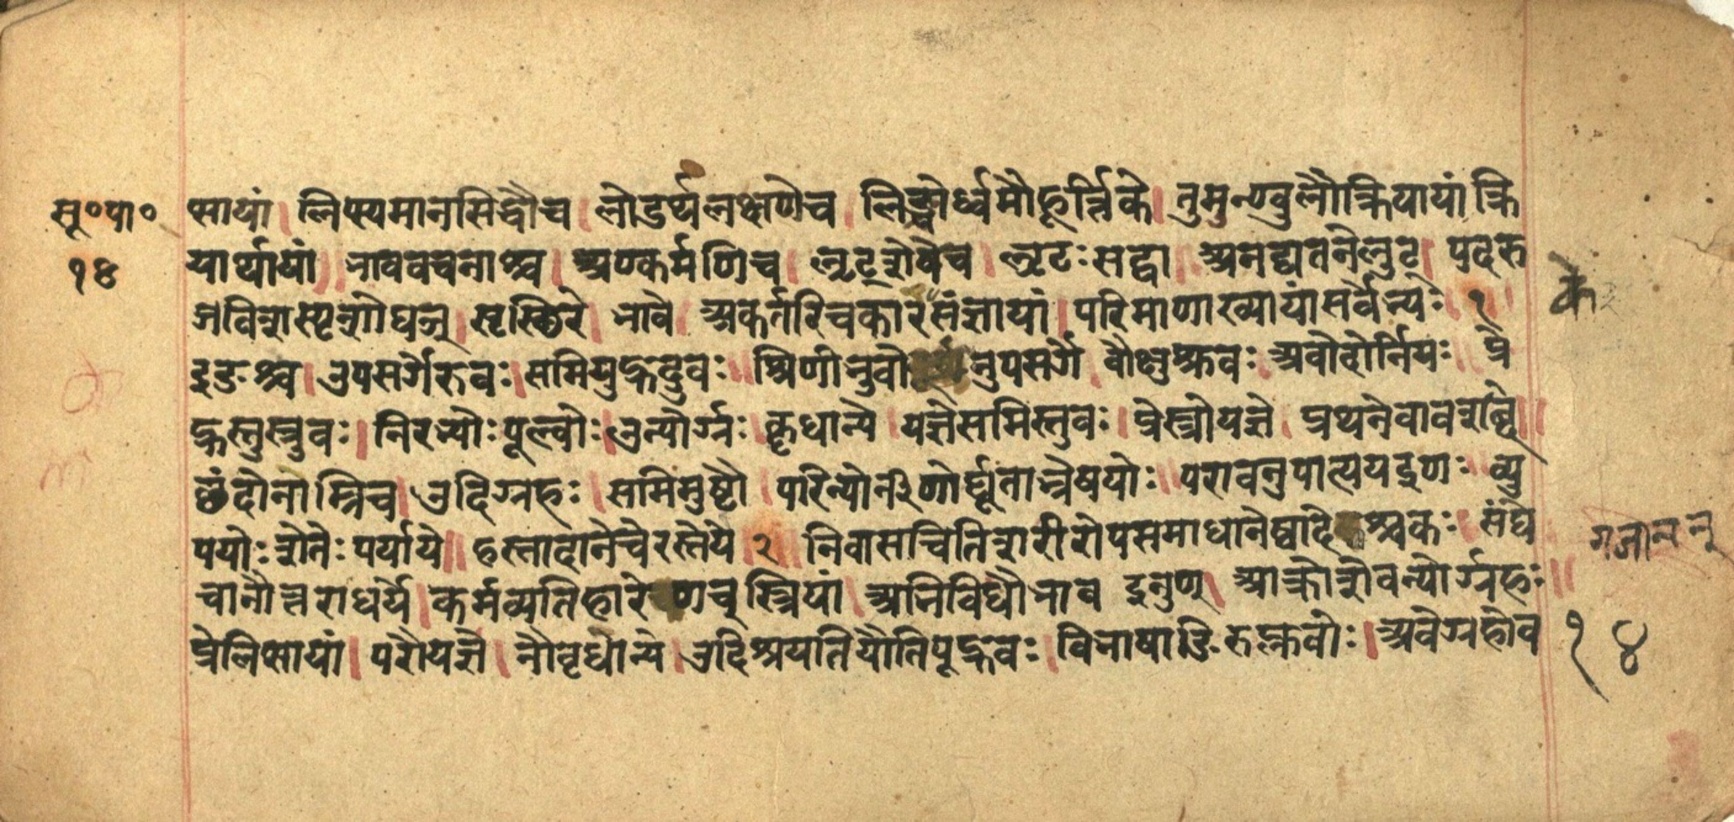 सू॰पा॰
१४
प्सायां। लिप्स्यमानसिद्धौच। लोडर्थलक्षणेच। लिङ्चोर्ध्वमौहूर्त्तिके। तुमुन्ण्वुलौक्रियायां क्रि
यार्थायां। भाववचनाश्च। अण्कर्मणिच। लृट्शेषेच। लृटःसद्वा। अनद्यतनेलुट्। पदरु
जविशस्पृशोघञ्। सृस्थिरे। भावे। अकर्तरिचकारसंज्ञायां। परिमाणाख्यायांसर्वेभ्यः १
इङश्च। उपसर्गेरुवः। समियुद्रुदुवः॥ श्रिणीभुवो नुपसर्गे। वौक्षुश्रुवः। अवोदोर्नियः॥ प्रे
द्रुस्तुस्रुवः। निरभ्योः पूल्वोः। उन्योर्ग्रः। कॄधान्ये। यज्ञेसमिस्तुवः। प्रेस्त्रोयज्ञे। प्रथनेवावशब्दे॥
छंदोनाम्निच। उदिग्रहः। समिमुष्टौ। परिन्योर्नीणोर्द्यूताभ्रेषयोः॥ परावनुपात्ययइणः॥ व्यु
पयोः शेतेः पर्याये॥ हस्तादानेचेरस्तेये २ निवासचितिशरीरोपसमाधानेष्वादे श्चकः। संघे
चानौत्तराधर्ये। कर्मव्यतिहारे णच्स्त्रियां। अभिविधौभाव इनुण्। आक्रोशेवन्योर्ग्रहः॥
प्रेलिप्सायां। परौयज्ञे। नौवृधान्ये। उदिश्रयतियौतिपूद्रुवः। विभाषाङिरुप्लुवोः। अवेग्रहोव
के
गजानन्
१४